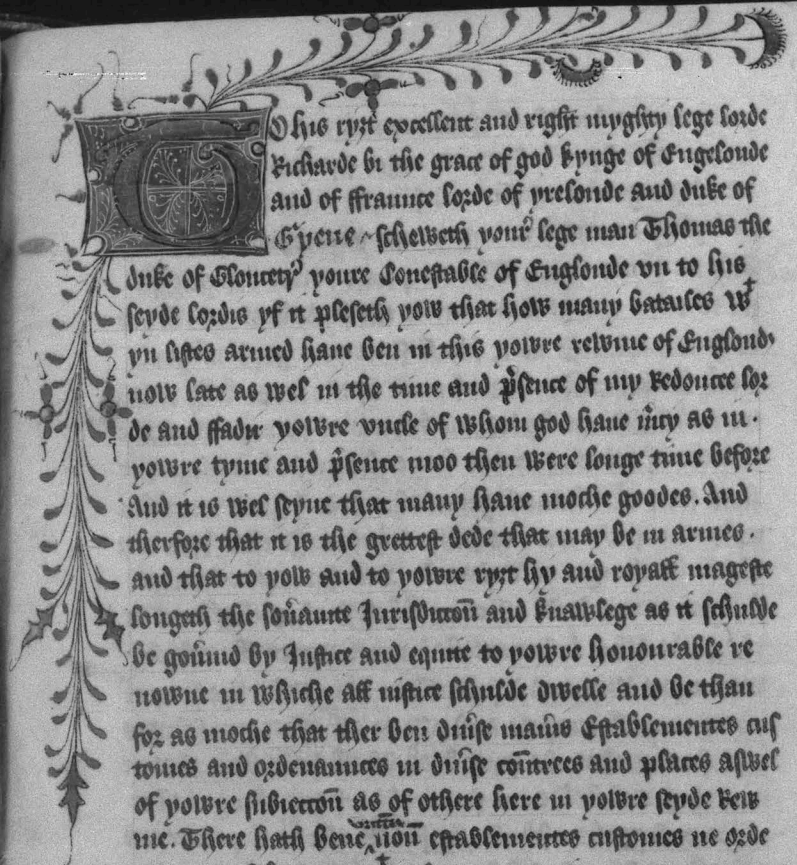 To his ryȝt excellent and right myghty lege lorde
Richarde bi the grace of god kynge of Engelonde
and of ffraunce lorde of yrelonde and duke of
Gypene scheweth your lege man Thomas the
duke of Gloucetr̛ youre Conestable of Englonde vn to his
seyde lordis yf it pleseth yow that how many batailes wt
yn listes armed haue ben in this yowre rewme of Englond
now late as wel in the time and p̛sence of my Redoutee lor
de and ffadir yowre vncle of whom god haue m̛cy as in.
yowre tyme and p̛sence moo then were longe time before
And it is wel seyne that many haue moche goodes. And
therfore that it is the grettest dede that may be in armes.
and that to yow and to yowre ryȝt hy and royall mageste
longeth the soưainte Jurisdiccoū and knawlege as it schulde
be goưnid by Justice and equite to yowre honourable re
nowne in whiche all iustice schulde dwelle and be than
for as moche that ther ben diưse man̛is Establementes cus
tomes and ordenaunces in diưse coūtrees and places aswel
of yowre subieccoū as of othere here in yowre seyde Rew
me. There hath bene noū establementes customes ne orde